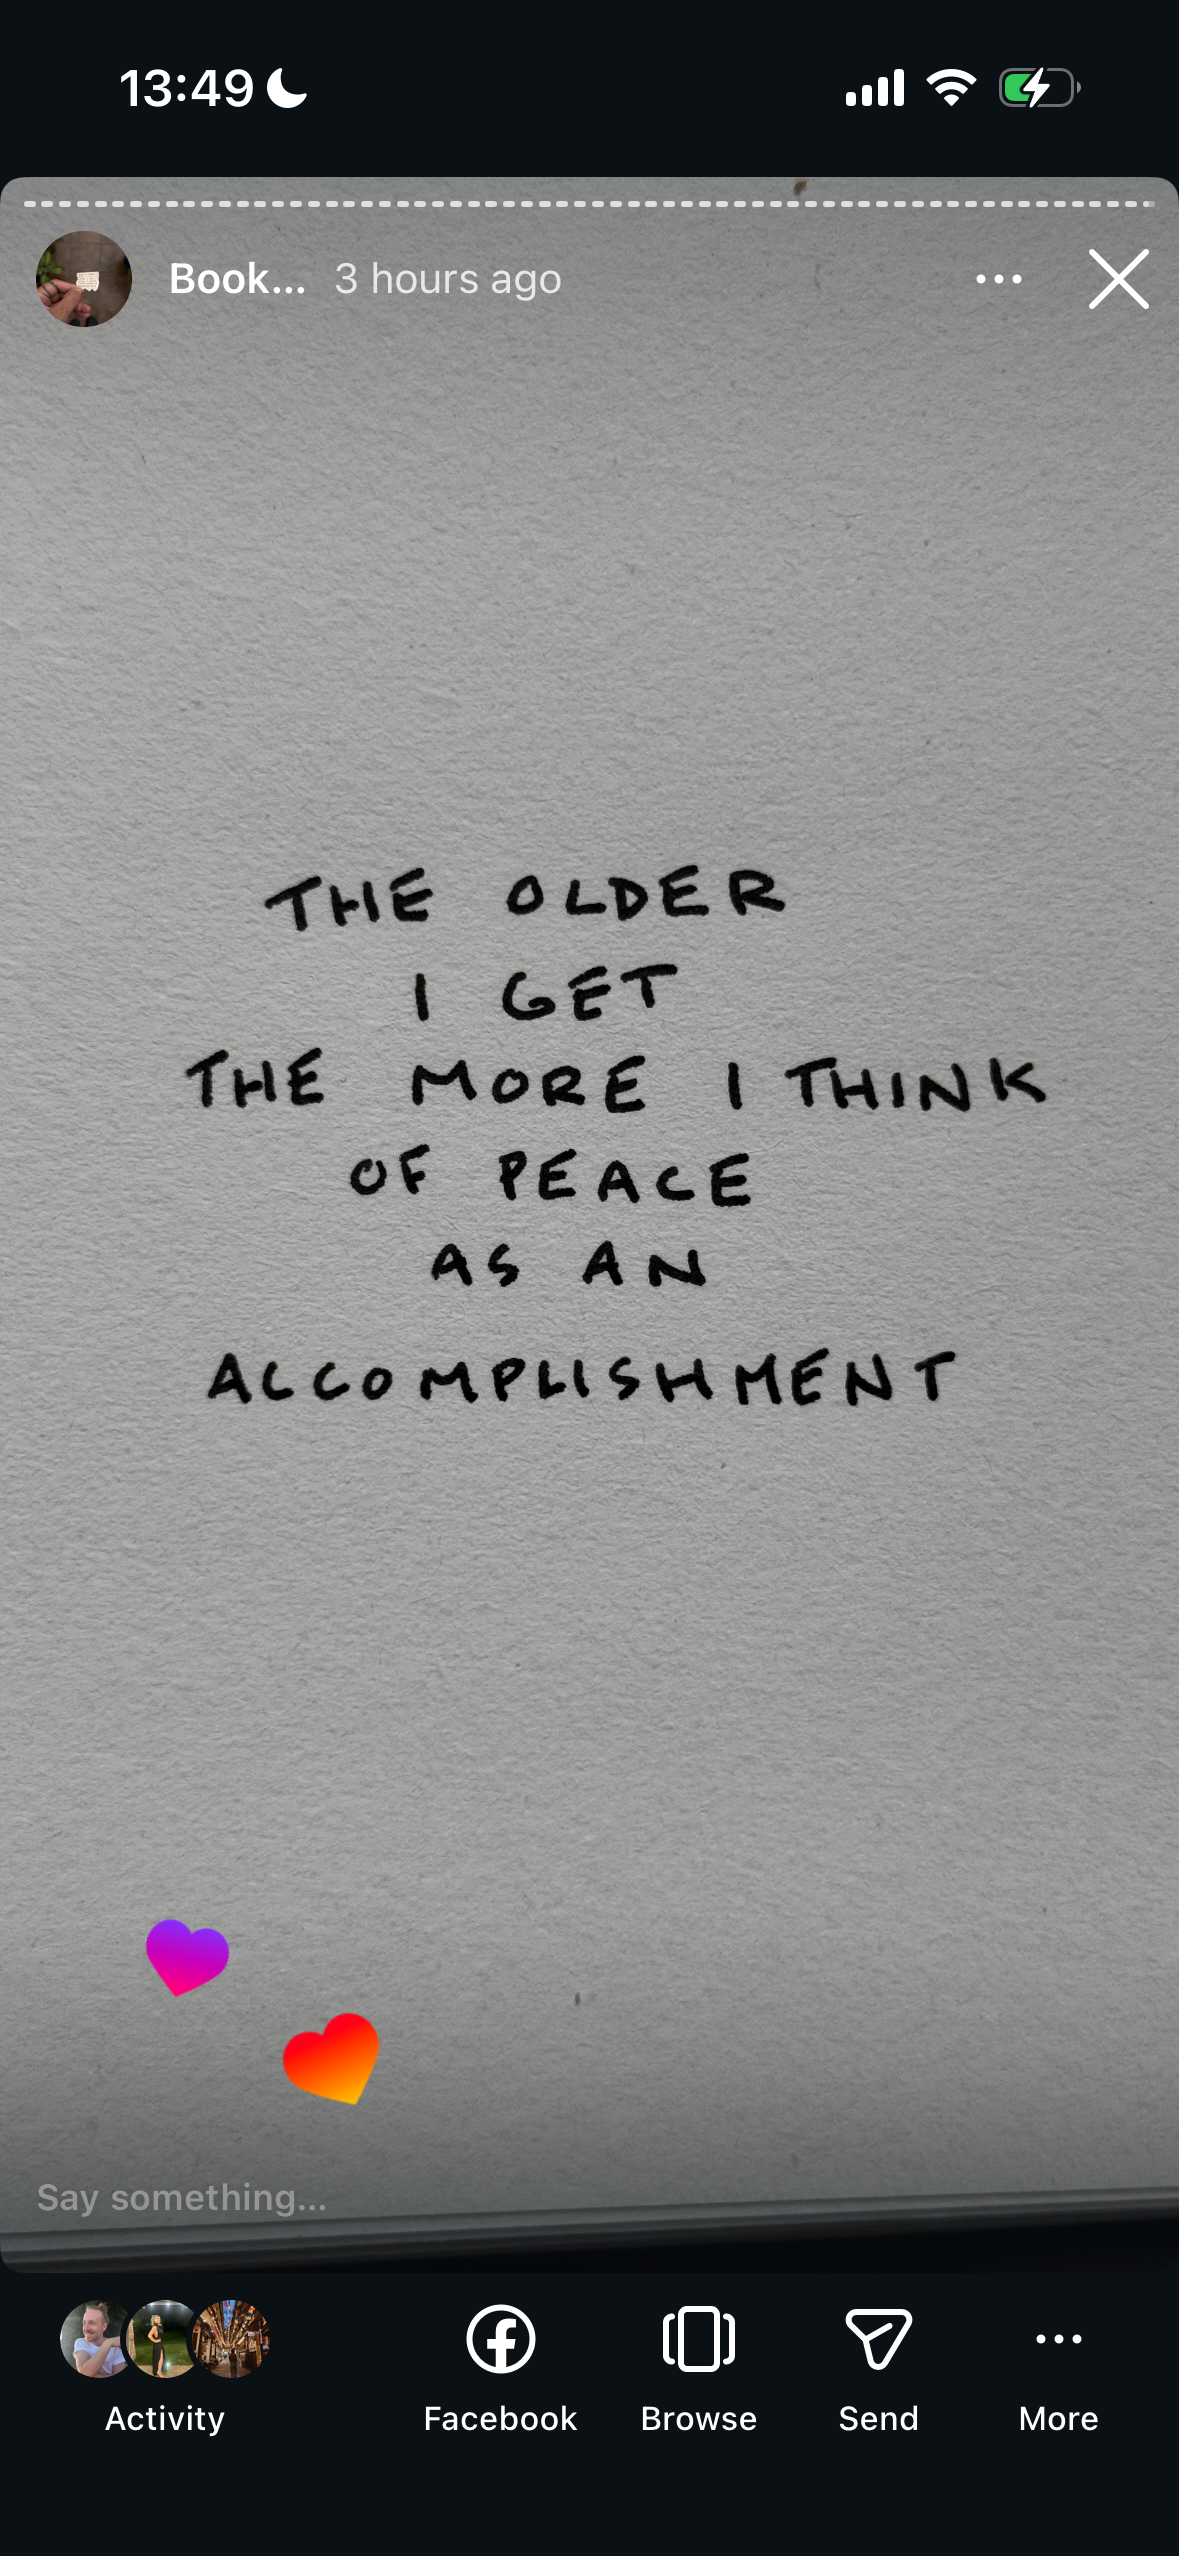 13:49
Book... 3 hours ago
THE OLDER
I GET
THE MORE I THINK
OF PEACE
AS AN
ACCOMPLISHMENT
Say something...
Activity Facebook Browse Send More